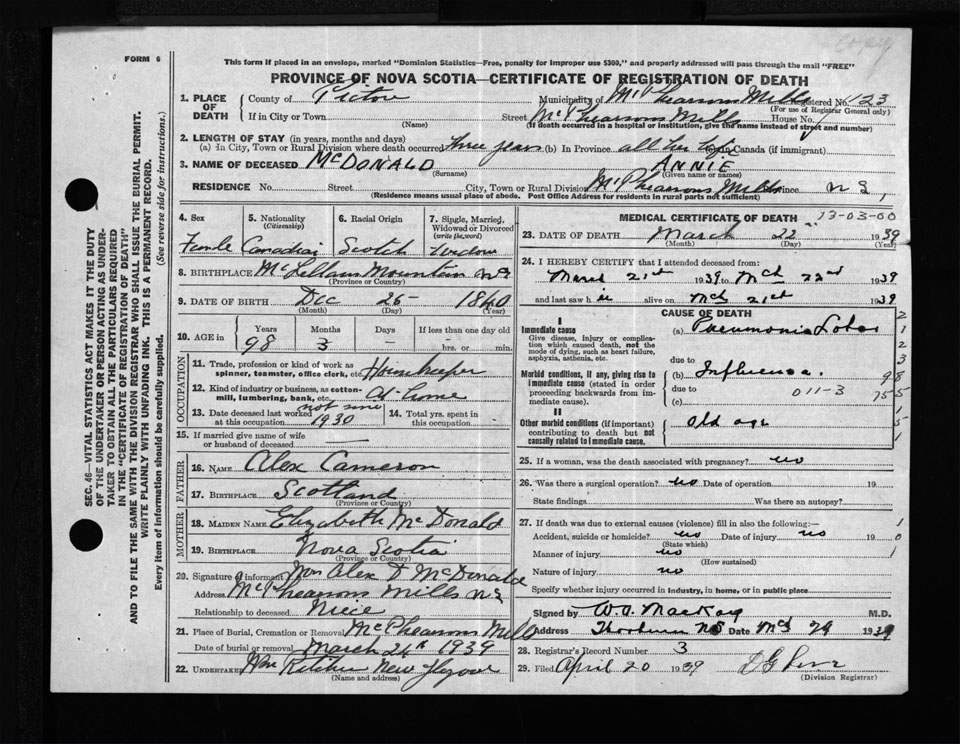 Copy
FORM 6
This form if placed in an envelope, marked "Dominion Statistics—Free, penalty for improper use $300," and properly addressed will pass through the mail "FREE"
PROVINCE OF NOVA SCOTIA—CERTIFICATE OF REGISTRATION OF DEATH
SEC. 46—VITAL STATISTICS ACT MAKES IT THE DUTY
OF THE UNDERTAKER OR PERSON ACTING AS UNDER-
TAKER TO OBTAIN ALL THE PARTICULARS REQUIRED
IN THE "CERTIFICATE OF REGISTRATION OF DEATH"
AND TO FILE THE SAME WITH THE DIVISION REGISTRAR WHO SHALL ISSUE THE BURIAL PERMIT.
WRITE PLAINLY WITH UNFADING INK. THIS IS A PERMANENT RECORD.
Every item of information should be carefully supplied. (See reverse side for instructions.)
1. PLACE OF DEATH County of Pictou Municipality of McPhearsons Mills Registered No. 1123
(For use of Registrar General only)
If in City or Town Street McPhearsons Mills House No.
(Name) (If death occurred in a hospital or institution, give the name instead of street and number)
2. LENGTH OF STAY (in years, months and days)
(a) In City, Town or Rural Division where death occurred three years (b) In Province all her life (c) In Canada (if immigrant)
3. NAME OF DECEASED McDONALD ANNIE
(Surname) (Given name or names)
RESIDENCE No. Street City, Town or Rural Division McPhearsons Mills Province N S
(Residence means usual place of abode. Post Office Address for residents in rural parts not sufficient)
4. Sex 5. Nationality (Citizenship) 6. Racial Origin 7. Single, Married, Widowed or Divorced (write the word)
Female Canadian Scotch Widow
8. BIRTHPLACE McLellans Mountain NS
(Province or Country)
9. DATE OF BIRTH Dec 25 1840
(Month) (Day) (Year)
10. AGE in Years Months Days If less than one day old
98 3 – hrs. or min.
OCCUPATION
11. Trade, profession or kind of work as spinner, teamster, office clerk, etc. Housekeeper
12. Kind of industry or business, as cotton-mill, lumbering, bank, etc. At home
13. Date deceased last worked at this occupation not since 1930 14. Total yrs. spent in this occupation
15. If married give name of wife or husband of deceased —
FATHER
16. NAME Alex Cameron
17. BIRTHPLACE Scotland
(Province or Country)
MOTHER
18. MAIDEN NAME Elizabeth McDonald
19. BIRTHPLACE Nova Scotia
(Province or Country)
20. Signature of informant Mrs Alex D McDonald
Address McPhearsons Mills NS
Relationship to deceased Niece
21. Place of Burial, Cremation or Removal McPhearsons Mills
Date of burial or removal March 24th 1939
22. UNDERTAKER New Glasgow
(Name and address)
MEDICAL CERTIFICATE OF DEATH 13-03-60
23. DATE OF DEATH March 22 1939
(Month) (Day) (Year)
24. I HEREBY CERTIFY that I attended deceased from:
March 21st 1939 to Mch 22nd 1939
and last saw h er alive on Mch 21st 1939
CAUSE OF DEATH
I
Immediate cause (a) Pneumonia Lobar
Give disease, injury or complication which caused death, not the mode of dying, such as heart failure, asphyxia, asthenia, etc.
due to
Morbid conditions, if any, giving rise to immediate cause (stated in order proceeding backwards from immediate cause). (b) Influenza.
due to 011-3
(c)
II
Other morbid conditions (if important) contributing to death but not causally related to immediate cause. Old age
25. If a woman, was the death associated with pregnancy? no
26. Was there a surgical operation? no Date of operation 19
State findings Was there an autopsy?
27. If death was due to external causes (violence) fill in also the following:—
Accident, suicide or homicide? no Date of injury no 19
(State which)
Manner of injury no
(How sustained)
Nature of injury no
Specify whether injury occurred in industry, in home, or in public place
Signed by W.A. MacKay M.D.
Address Thorburn NS Date Mch 29 1939
28. Registrar's Record Number 3
29. Filed April 20 1939
(Division Registrar)